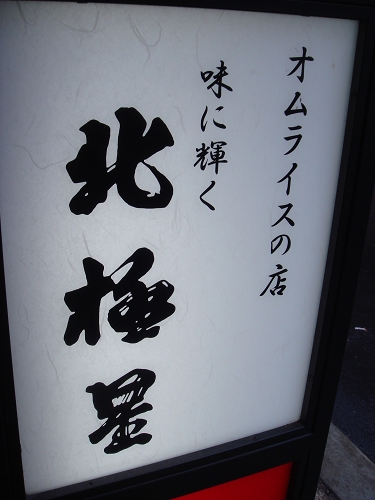 オムライスの店
味に輝く
北極星